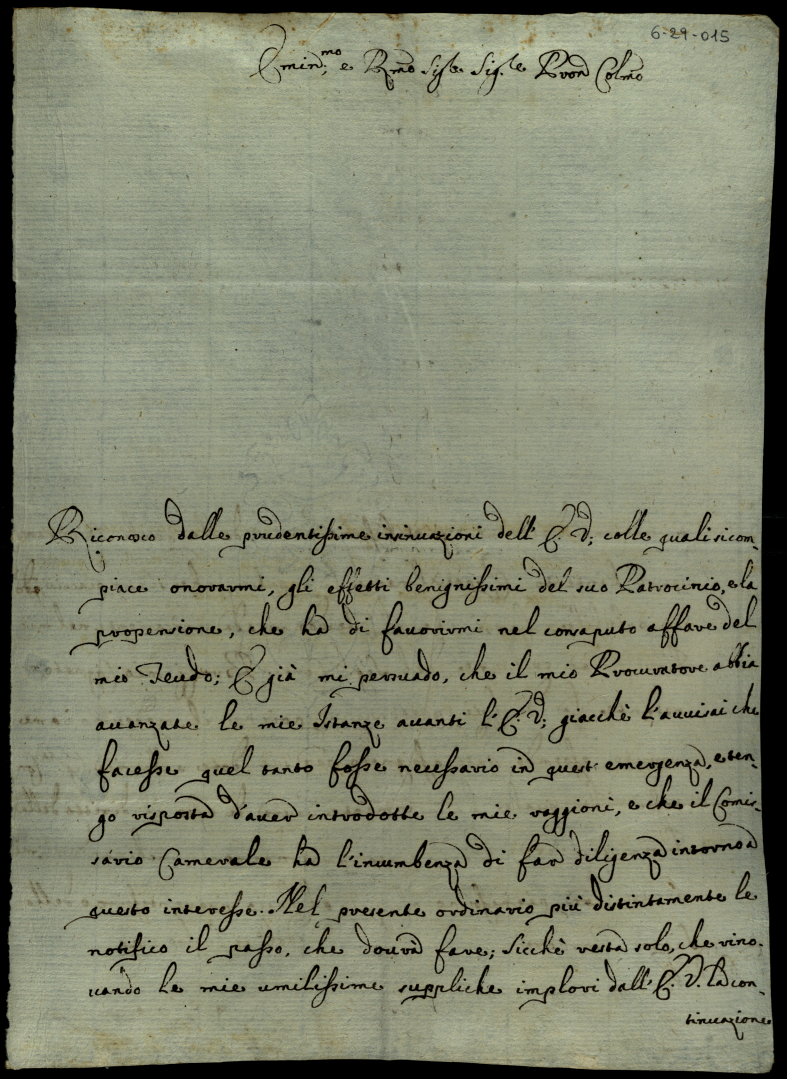 6-29-015
Emin.mo e Rmo Sig.re Sig.re Pron Colmo
Riconosco dalle prudentissime insinuazioni dell' E. V; colle quali si com-
piace onorarmi, gli effetti benignissimi del suo Patrocinio, e la
propensione, che ha di favorirmi nel consaputo affare del
mio Feudo; E già mi persuado, che il mio Procuratore abbia
avanzate le mie Istanze avanti l'E. V; giacchè l'avvisai che
facesse quel tanto fosse necessario in quest emergenza, e ten-
go risposta d'aver introdotte le mie raggioni, e che il Comis-
sario Camerale ha l'incumbenza di far diligenza intorno a
questo interesse. Nel presente ordinario più distintamente le
notifico il passo, che dovrà fare; Sicchè resta solo, che rino-
vando le mie umilissime suppliche implori dall' E. V. la con-
tinuazione